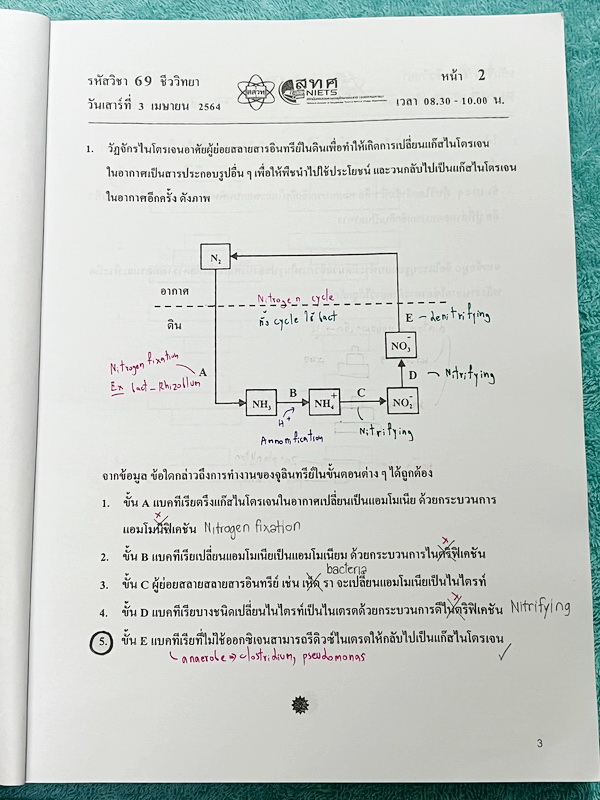 รหัสวิชา 69 ชีววิทยา
หน้า 2
สทศ
NIETS
วันเสาร์ที่ 3 เมษายน 2564
เวลา 08.30 - 10.00 น.
1. วัฏจักรไนโตรเจนอาศัยผู้ย่อยสลายสารอินทรีย์ในดินเพื่อทำให้เกิดการเปลี่ยนแก๊สไนโตรเจน
ในอากาศเป็นสารประกอบรูปอื่น ๆ เพื่อให้พืชนำไปใช้ประโยชน์ และวนกลับไปเป็นแก๊สไนโตรเจน
ในอากาศอีกครั้ง ดังภาพ
N₂
อากาศ
Nitrogen cycle
ดิน
ทั้ง cycle ใช้ bact
E – denitrifying
NO₃⁻
Nitrogen fixation
A
Ex bact – Rhizobium
D – Nitrifying
B
C
NH₃
NH₄⁺
NO₂⁻
H⁺
Nitrifying
Ammonification
จากข้อมูล ข้อใดกล่าวถึงการทำงานของจุลินทรีย์ในขั้นตอนต่าง ๆ ได้ถูกต้อง
1. ขั้น A แบคทีเรียตรึงแก๊สไนโตรเจนในอากาศเปลี่ยนเป็นแอมโมเนีย ด้วยกระบวนการ
แอมโมนิฟิเคชัน Nitrogen fixation
2. ขั้น B แบคทีเรียเปลี่ยนแอมโมเนียเป็นแอมโมเนียม ด้วยกระบวนการไนตริฟิเคชัน
bacteria
3. ขั้น C ผู้ย่อยสลายสลายสารอินทรีย์ เช่น เห็ด รา จะเปลี่ยนแอมโมเนียเป็นไนไทรท์
4. ขั้น D แบคทีเรียบางชนิดเปลี่ยนไนไตรท์เป็นไนเตรตด้วยกระบวนการดีไนตริฟิเคชัน Nitrifying
5. ขั้น E แบคทีเรียที่ไม่ใช้ออกซิเจนสามารถรีดิวซ์ไนเตรตให้กลับไปเป็นแก๊สไนโตรเจน
anaerobe ⇒ clostridium, pseudomonas
3